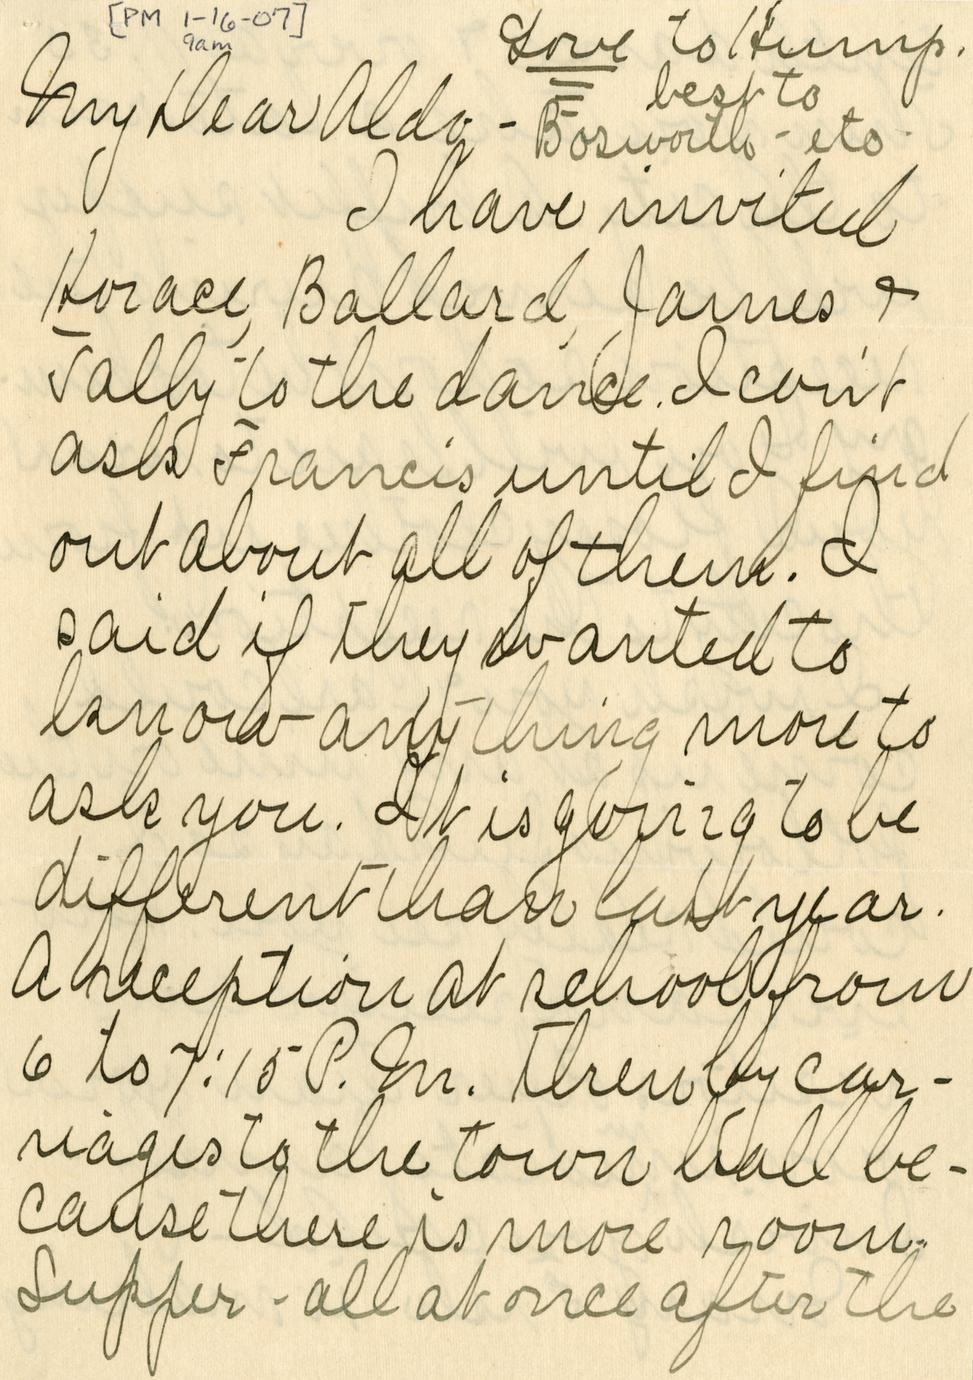 [PM 1-16-07]
9am
Love to Hump.
best to
Bosworth - etc.
My Dear Aldo -
I have invited
Horace, Ballard, James &
Tally to the dance. I can't
ask Francis until I find
out about all of them. I
said if they wanted to
know anything more to
ask you. It is going to be
different than last year.
A reception at school from
6 to 7:15 P.M. Then by car-
riages to the town hall be-
cause there is more room.
Supper - all at once after the